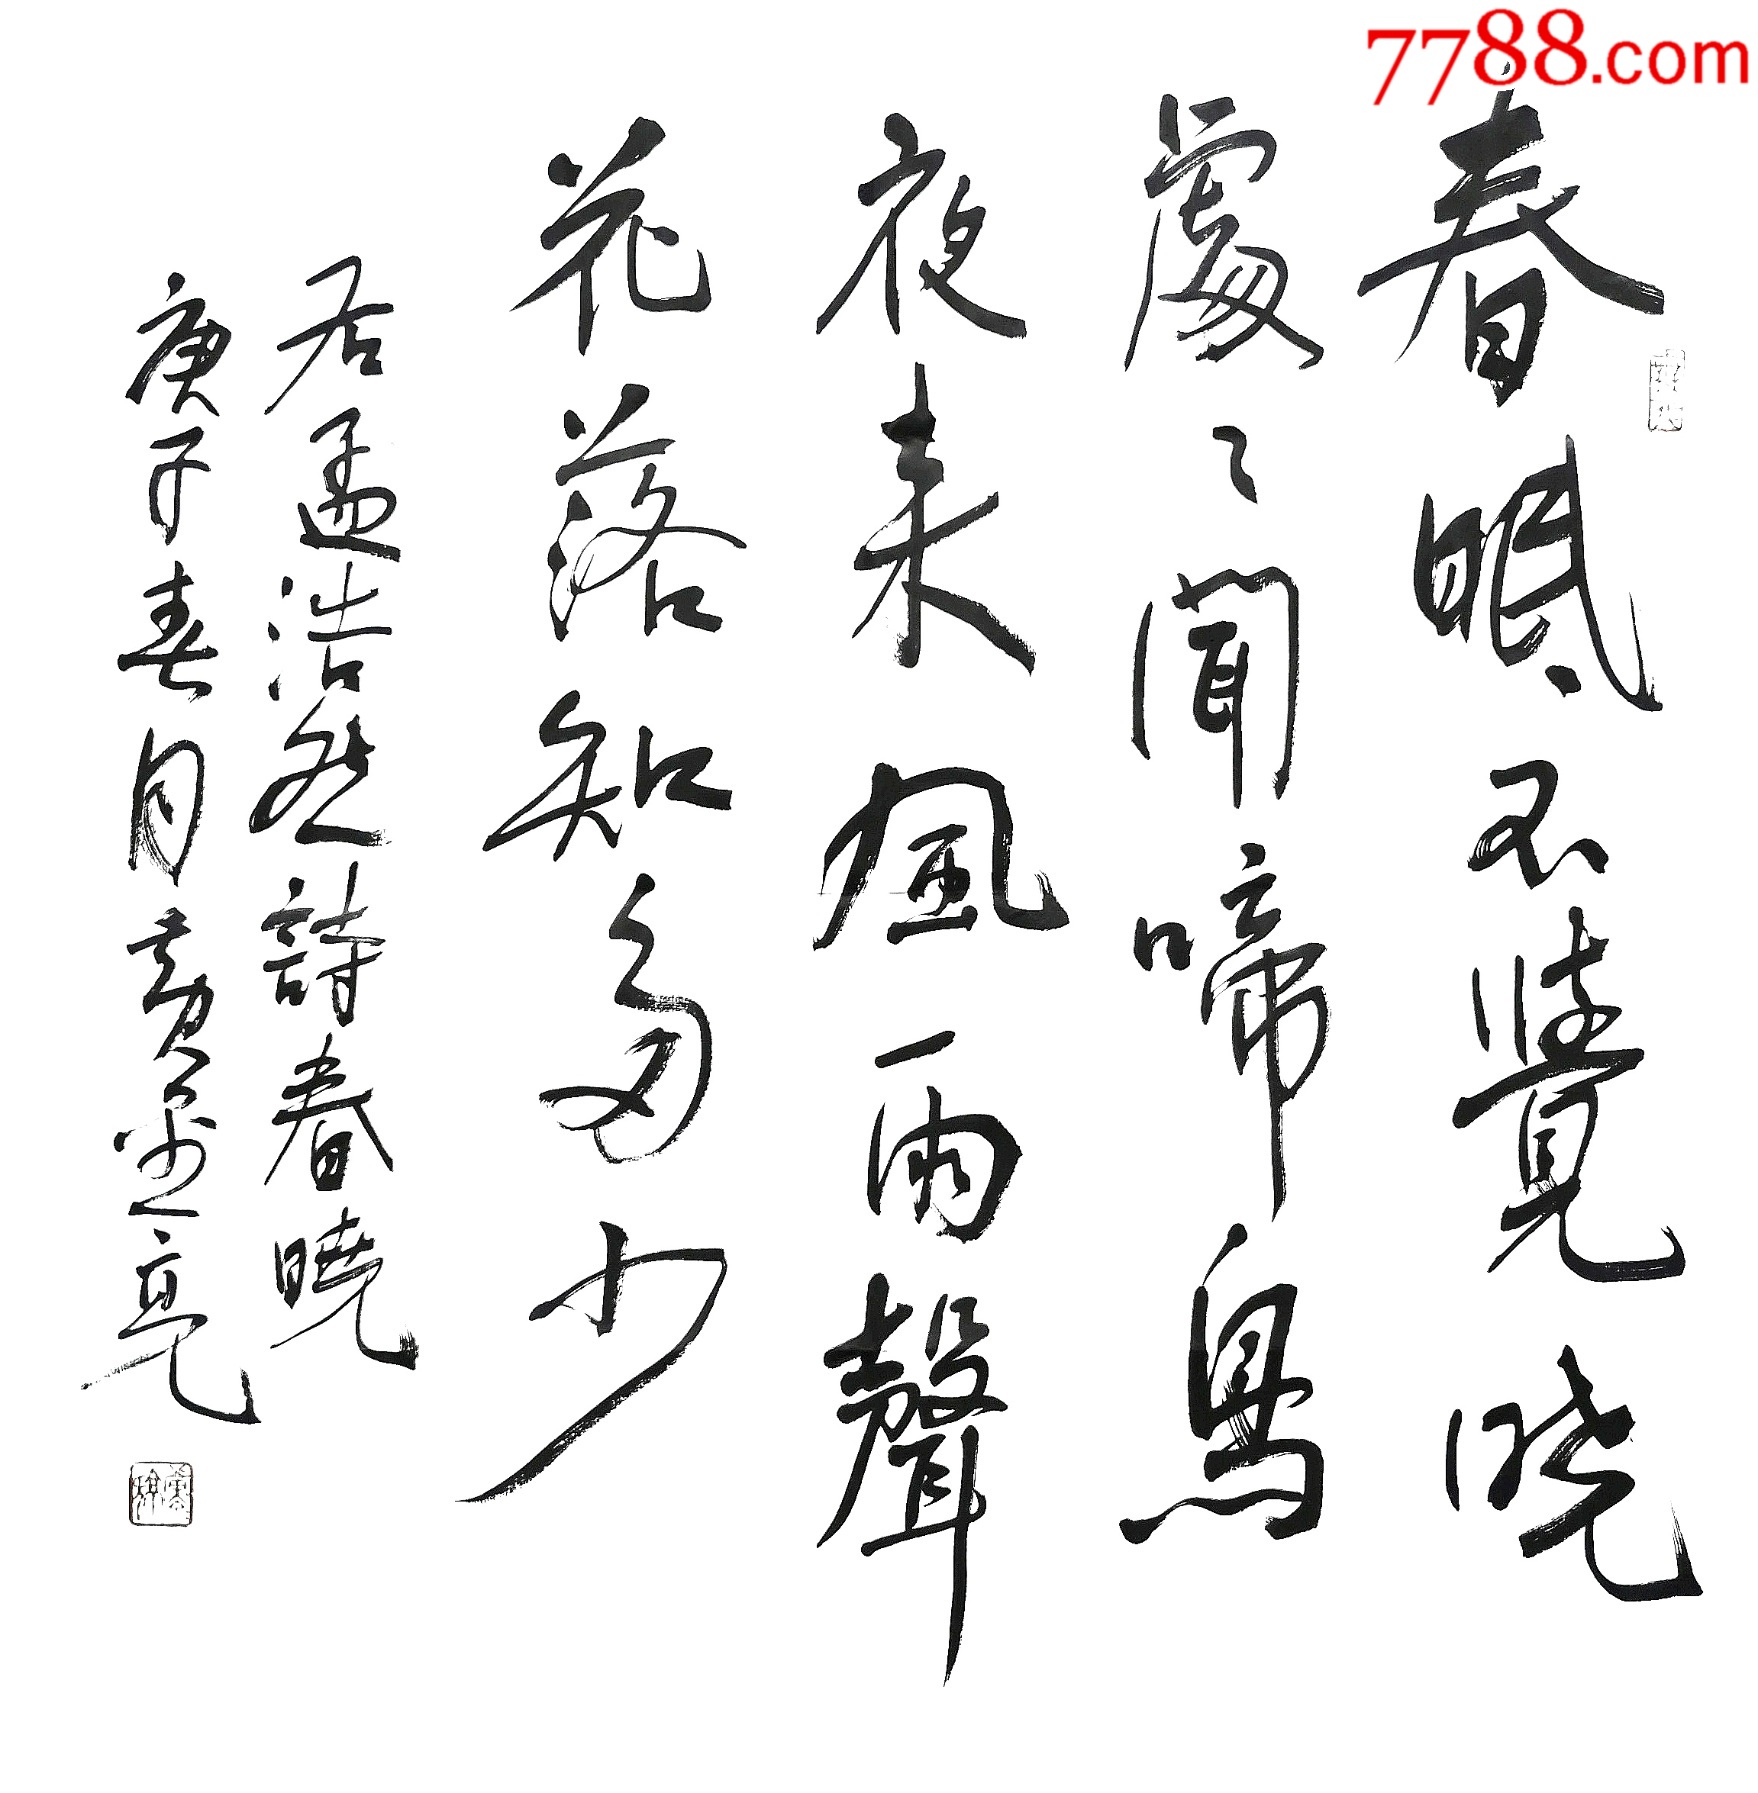 7788.com
春眠不覺曉
處々聞啼鳥
夜来風雨聲
花落知多少
右孟浩然詩春曉
庚子春月黄亮